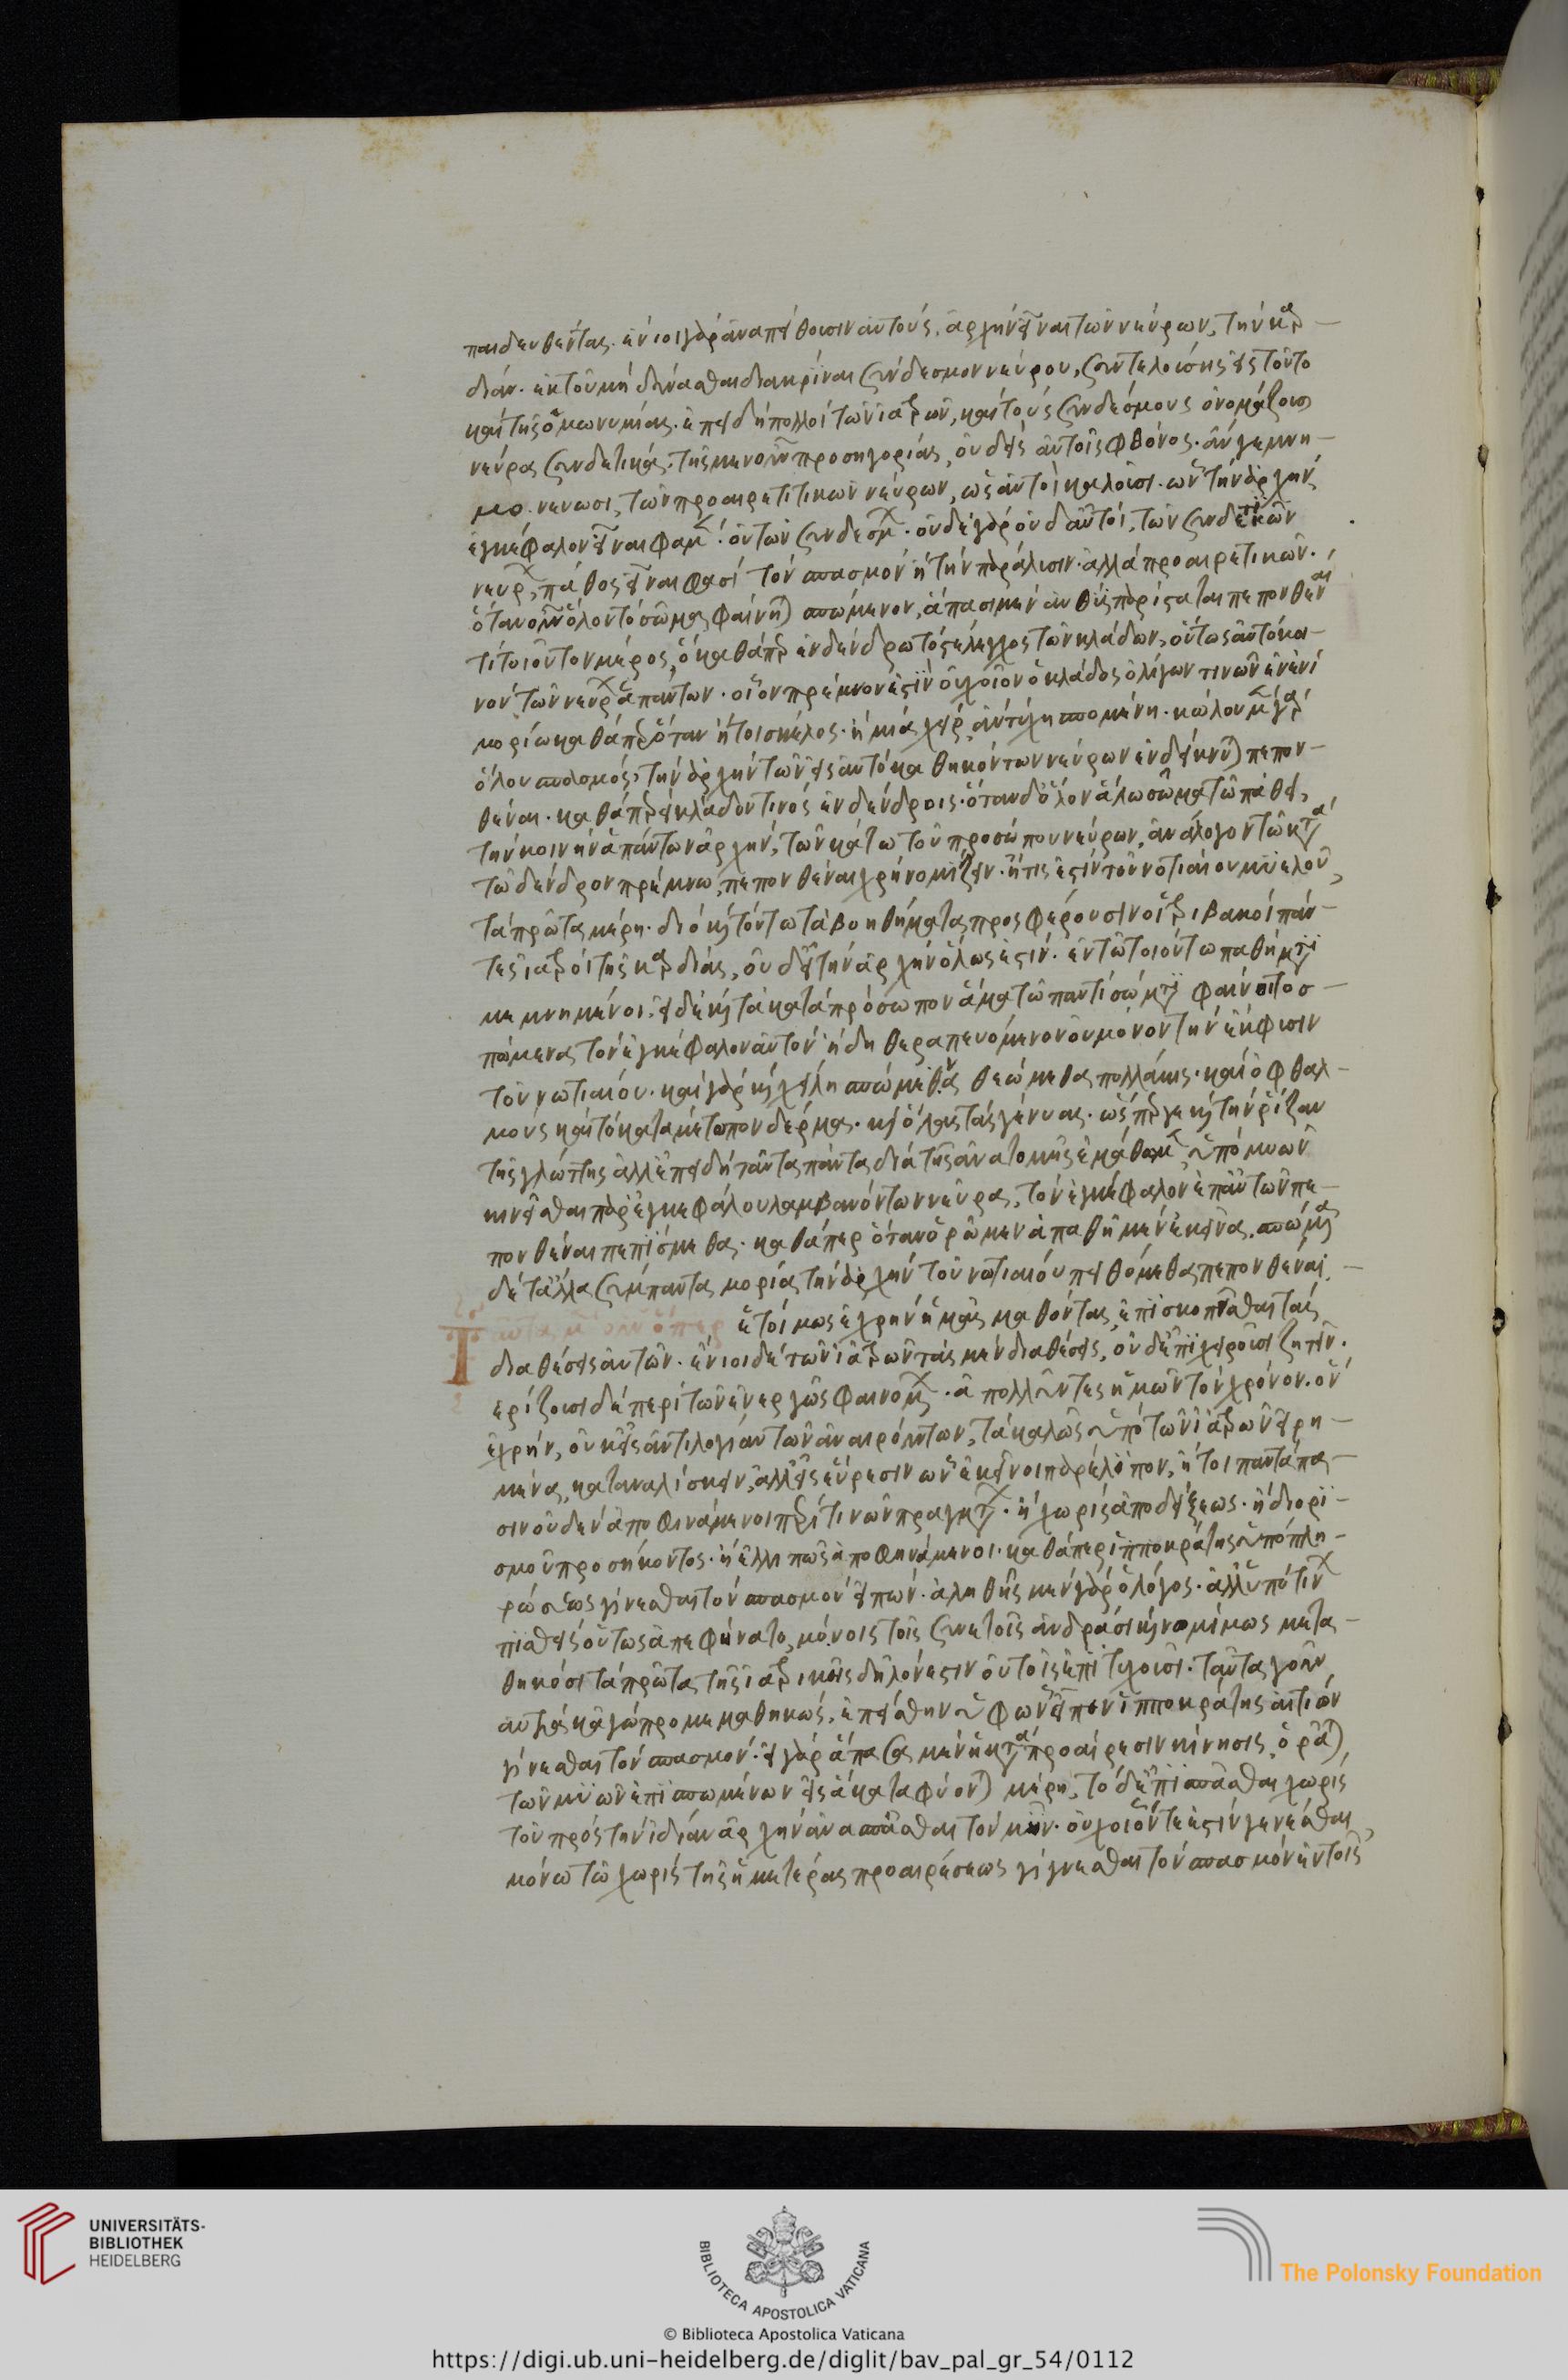 παιδευθέντας. ἔνιοι γὰρ ἀναπείθουσιν αὐτοὺς, ἀρχὴν εἶναι τῶν νεύρων, τὴν καρ-
δίαν. ἐκ τοῦ μὴ δύνασθαι διακρῖναι σύνδεσμον νεύρου, συντελούσης εἰς τοῦτο
καὶ τῆς ὁμωνυμίας. ἐπειδὴ πολλοὶ τῶν ἰατρῶν, καὶ τοὺς συνδέσμους ὀνομάζουσι
νεῦρα συνδετικά. τῆς μὲν οὖν προσηγορίας, οὐδεὶς αὐτοῖς φθόνος. ἄν γε μνη-
μονεύωσι, τῶν προαιρετικῶν νεύρων, ὡς αὐτοὶ καλοῦσι. ὧν τὴν ἀρχὴν
ἐγκέφαλον εἶναι φαμέν. οὐ τῶν συνδέσμων. οὐδὲ γὰρ οὐδ' αὐτοί, τῶν συνδετικῶν
νεύρων, πάθος εἶναι φασί τὸν σπασμὸν ἢ τὴν παράλυσιν. ἀλλὰ προαιρετικῶν.
ὅταν οὖν ὅλον τὸ σῶμα φαίνηται σπώμενον, ἅπασιμὲν ἀνθ
τὶ τοιοῦτον μέρος, ὃ καθάπερ ἐν δένδρω τὸ στέλεχος τῶν κλάδων, οὕτως αὐτὸ κοι-
νὸν τῶν νεύρων ἁπάντων. οἷον πρέμνον ἐστίν ὁ κλάδος ὀλίγων τινῶν ἐν ἑνὶ
μορίω καθάπερ ὅταν ἤτοι σκέλος. ἢ μία χεὶρ αὐτύχη σπωμένη. κώλου μὲν γὰρ
ὅλου σπασμὸς, τὴν ἀρχὴν τῶν εἰς αὐτὸ καθηκόντων νεύρων ἐνδείκνυται πεπον-
θέναι. καθάπερ εἰ κλάδον τινὸς ἐν δένδροις. ὅταν δ' ὅλον ἁλῶ σῶμα τῶ πάθει,
τὴν κοινὴν ἁπάντων ἀρχὴν, τῶν κάτω τοῦ προσώπου νεύρων, ἀνάλογον τῶ κατὰ
τὸ δένδρον πρέμνω, πεπονθέναι χρὴ νομίζειν. ἥτις ἐστὶν τοῦ νωτιαίου μυελοῦ,
τὰ πρῶτα μέρη. διὸ καὶ τούτω τὰ βοηθήματα προσφέρουσιν οἱ τριβακοὶ πάν-
τες ἰατροὶ τῆς καρδίας, οὐδὲ τὴν ἀρχὴν ὅλως ἐστίν. ἐν τῶ τοιούτω παθήματι
μεμνημένοι. εἰ δὲ καὶ τὰ κατὰ πρόσωπον ἅμα τῶ παντὶ σώματι φαίνοιτο σ-
πώμενα τὸν ἐγκέφαλον αὐτὸν ἤδη θεραπευόμενον οὐ μόνον τὴν ἔκφυσιν
τοῦ νωτιαίου. καὶ γὰρ καὶ χείλη σπώμενα θεώμεθα πολλάκις. καὶ ὀφθαλ-
μοὺς καὶ τὸ κατὰ μέτωπον δέρμα. καὶ ὅλας τὰς γένυας. ὥσπερ γε καὶ τὴν ῥίζαν
τῆς γλώττης ἀλλ' ἐπειδὴ ταῦτα πάντα διὰ τῆς ἀνατομῆς ἐμάθομεν ὑπὸ μυῶν
κινεῖσθαι παρ' ἐγκεφάλου λαμβανόντων νεῦρα, τὸν ἐγκέφαλον ἐπ' αὐτῶν πε-
πονθέναι πεπίσμεθα. καθάπερ ὅταν ὁρῶμεν ἀπαθῆ μὲν ἐκεῖνα. σπώμενα
δὲ τἄλλα σύμπαντα μόρια τὴν ἀρχὴν τοῦ νωτιαίου πειθόμεθα πεπονθέναι. -
Ταῦτα μὲν οὖν ὅπερ ἑτοίμως ἐχρῆν ἡμᾶς μαθόντας, ἐπισκοπεῖσθαι τὰς
διαθέσεις αὐτῶν. ἔνιοι δὲ τῶν ἰατρῶν τὰς μὲν διαθέσεις, οὐδ' ἐπιχειροῦσι ζητεῖν.
ἐρίζουσι δὲ περὶ τῶν ἐναργῶς φαινομένων. ἀπολλύντες ἡμῶν τὸν χρόνον. ὃν
ἐχρῆν, οὐκ εἰς ἀντιλογίαν τῶν ἀναιρούντων, τὰ καλῶς ὑπὸ τῶν ἰατρῶν εἰρη-
μένα, καταναλίσκειν, ἀλλ' εἰς εὕρεσιν ὧν ἐκεῖνοι παρέλιπον, ἤτοι παντάπα-
σιν οὐδὲν ἀποφηνάμενοι περί τινων πραγμάτων. ἢ χωρὶς ἀποδείξεως. ἢ διορι-
σμοῦ προσήκοντος. ἢ ἐλλιπῶς ἀποφηνάμενοι. καθάπερ ἱπποκράτης ὑπὸ πλη-
ρώσεως γίνεσθαι τὸν σπασμὸν εἰπών. ἀληθὴς μὲν γὰρ ὁ λόγος. ἀλλ' ὑπό τινων
πιαθεὶς οὕτως ἀπεφήνατο, μόνοις τοῖς συνετοῖς ἀνδράσι καὶ νομίμως μετα-
θηκόσι τὰ πρῶτα τῆς ἰατρικῆς δῆλον ἐστιν οὐ τοῖς ἐπιτυχοῦσι. ταῦτα γοῦν
αὐτὰ κἀγὼ προμεμαθηκὼς, ἐπείσθην ὑφ' ὧν εἶπεν ἱπποκράτης αἰτιῶν
γίνεσθαι τὸν σπασμόν. εἰ γὰρ ἅπασα μὲν ἡ κατὰ προαίρεσιν κίνησις, ὁρᾶται,
τῶν μυῶν ἐπισπωμένων εἰς ἃ καταφύονται μέρη, τὸ δ' ἐπισπᾶσθαι χωρὶς
τοῦ πρὸς τὴν ἰδίαν ἀρχὴν ἀνασπᾶσθαι τὸν μῦν. οὐχ οἷόν τε ἐστὶν γενέσθαι,
μόνω τῶ χωρὶς τῆς ἡμετέρας προαιρέσεως γίγνεσθαι τὸν σπασμὸν ἐν τοῖς
UNIVERSITÄTS-
BIBLIOTHEK
HEIDELBERG
BIBLIOTECA APOSTOLICA VATICANA
The Polonsky Foundation
© Biblioteca Apostolica Vaticana
https://digi.ub.uni-heidelberg.de/diglit/bav_pal_gr_54/0112